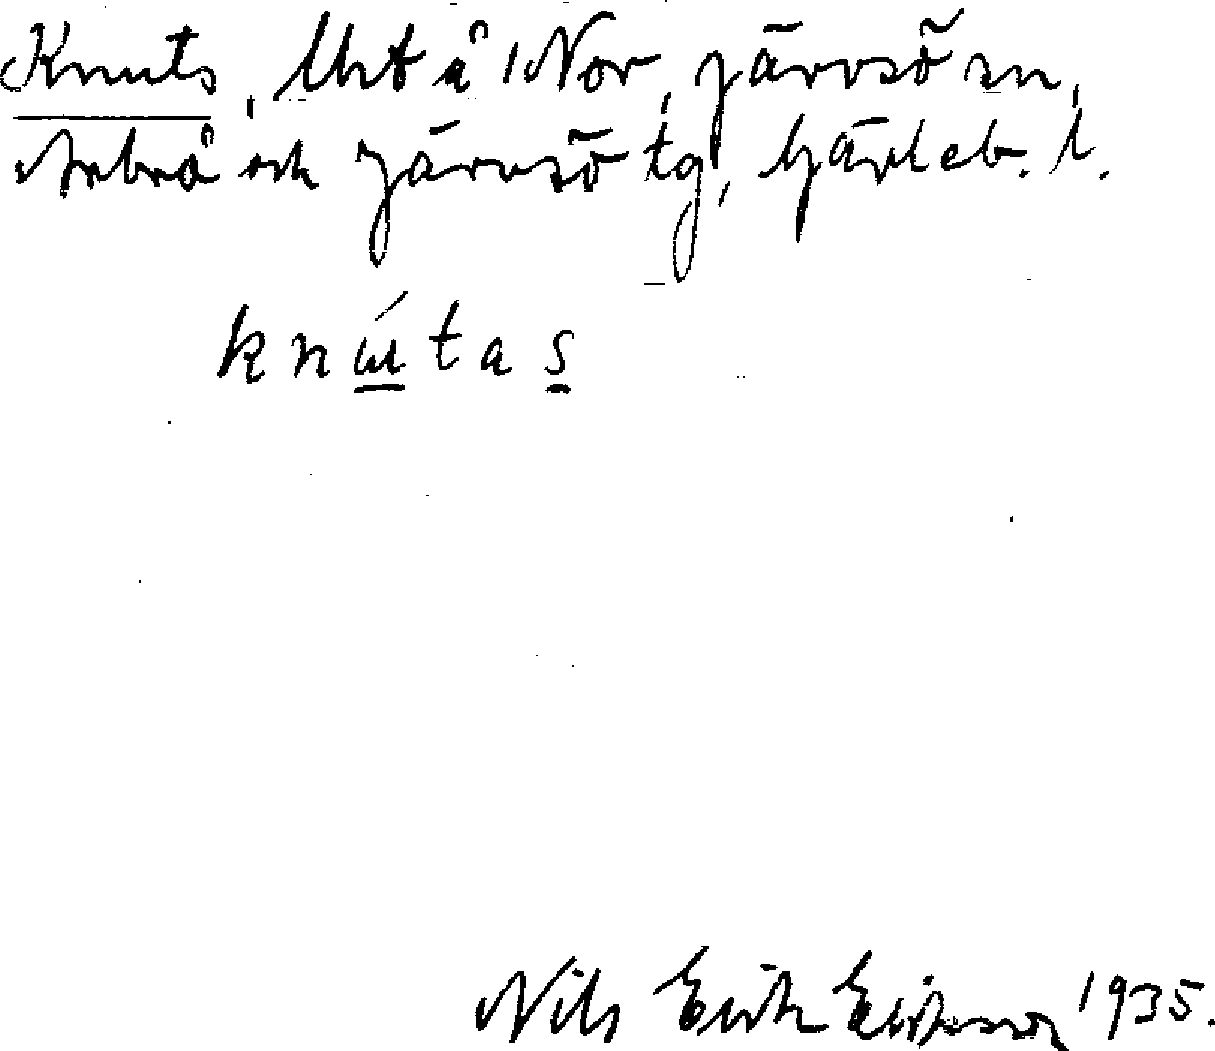 Knuts, Urt å 1 Nor, Järvsö sn,
Arbrå och Järvsö tg, Gävleb. l.
knútas
Nils Erik Eriksson 1935.